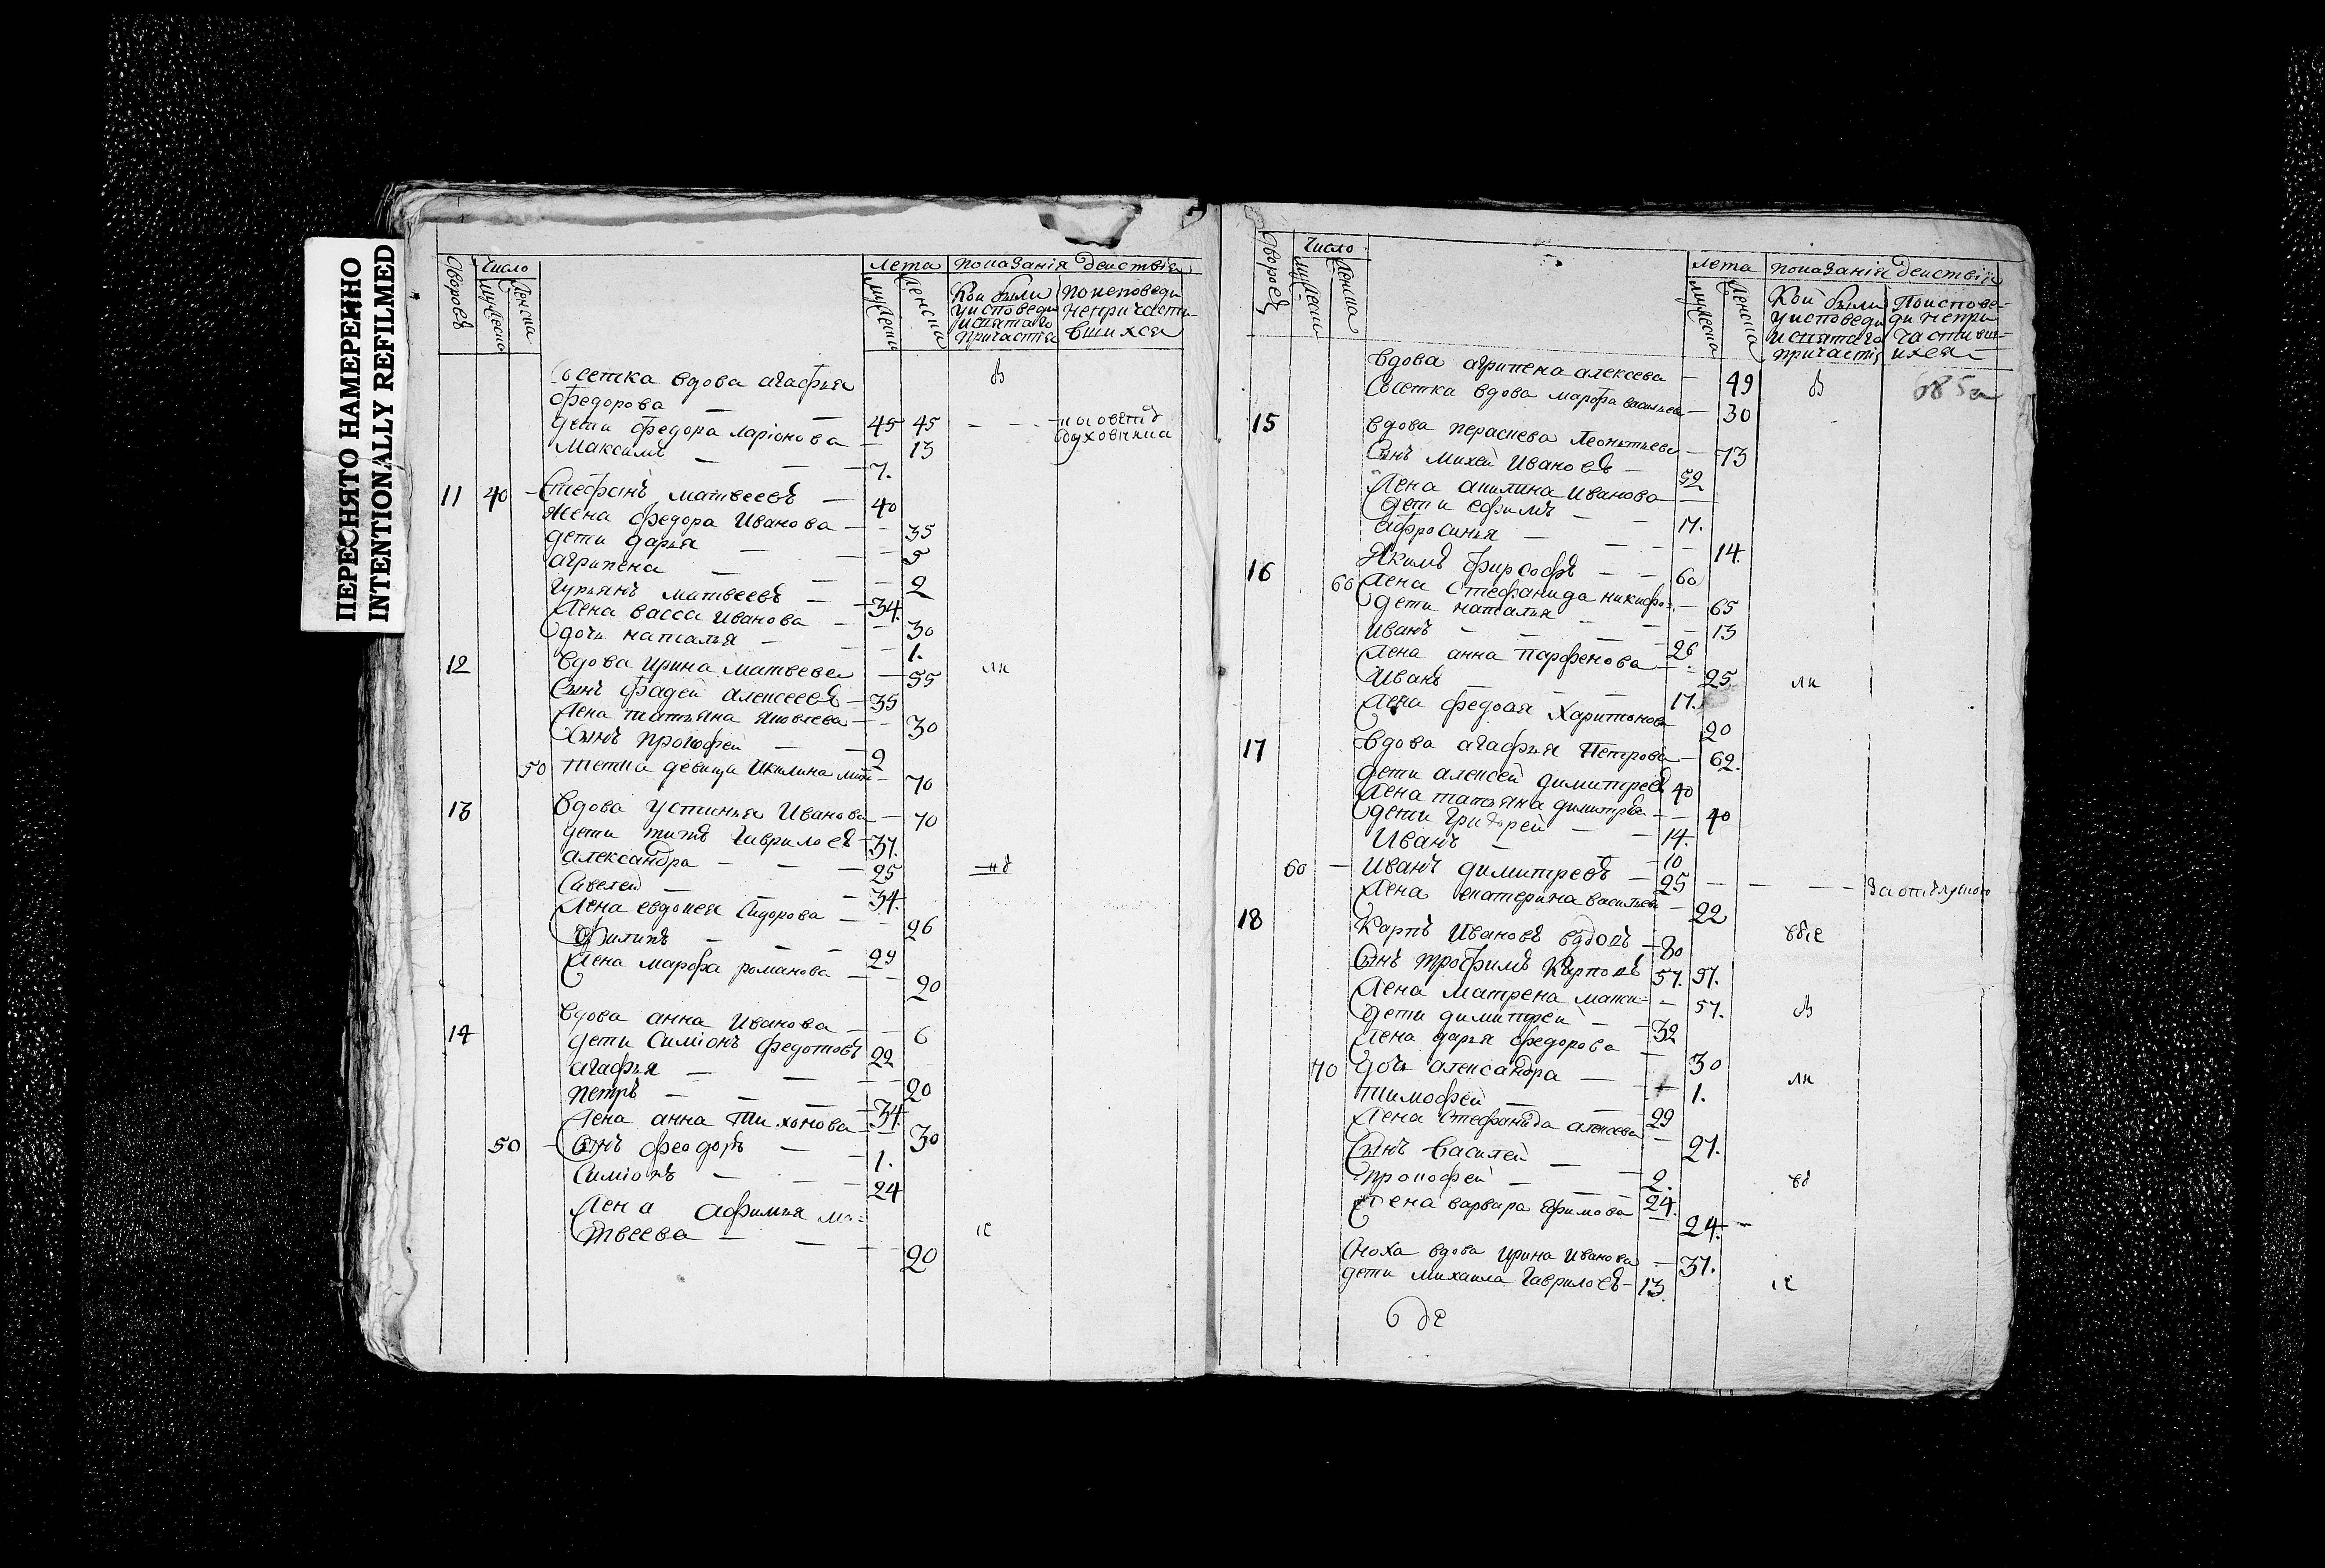 ПЕРЕСНЯТО НАМЕРЕННО
INTENTIONALLY REFILMED
Число лета показанія действія
дворовъ мужеска женска мужеска женска Кои были уисповеди исвятаго причастія поисповеди непричасти вшихся
вдова агафья
федорова — — 45 45
дети федора ларіонова — 13
Максимъ — — 7.
11 40 Стефанъ матвеевъ — 40
жена федора Иванова — 35
дети дарья — — 5
агрипена — — 2
гурьянъ матвеевъ — 34.
жена васса Иванова — 30
дочь наталья — — 1.
12 вдова ирина матвеева — 55
Сынъ фадей алексеевъ — 35
жена татьяна яковлева — 30
Сынъ прокофей — — 2
50 тетка девица Икилина — 70
13 вдова устинья Иванова — 70
дети титъ гавриловъ — 37.
александра — — 25
Савелей — — 34.
жена евдокея Сидорова — 26
Филипъ — — 29
жена марфа романова — 20
14 вдова анна Иванова — 6
дети Симіонъ федотовъ 22
агафья — — 20
петръ — — 34.
жена анна Тихонова — 30
50 — Сынъ феодоръ — 1.
Симіонъ — — 24
жена Афимья ма=
твеева — — 20
Число лета показанія действія
дворовъ мужеска женска мужеска женска Кои были уисповеди исвятаго причастія Поисповеди непричастившихся
вдова агрипена алексева — 49
вдова марфа васильева — 30
685а
15 вдова параскева Леонтьева — 73
Сынъ михей Ивановъ — 52
жена акилина Иванова —
дети ефимъ — 17.
афросинья — — 14.
16 Якимъ фирсофъ — — 60
60 жена Стефанида никифо=. — 65
дети наталья — — 13
иванъ — — 26
жена анна парфенова — 25
Иванъ — — 17.
жена федосія Харитонова 20
17 вдова агафья Петрова — 62.
дети алексей димитревъ 40
жена татьяна димитрева — 40
дети Григорей — — 14.
Иванъ — — 10
60 — Иванъ димитревъ — 25 — — — Заотлучкою
жена екатерина васильева — 22
18 Карпъ Ивановъ вдовъ — 80
Сынъ трофимъ Карповъ 57. 57.
жена матрена макси= — 57.
дети димитрей — — 32
жена дарья федорова — 30
70 дочь александра — — 1.
тимофей — — 29
жена Стефанида алексева — 27.
Сынъ василей — — 2.
прокофей — — 24.
жена варвара Ефимова — 24.
Сноха вдова ирина Иванова — 37.
дети михаила гавриловъ — 13.